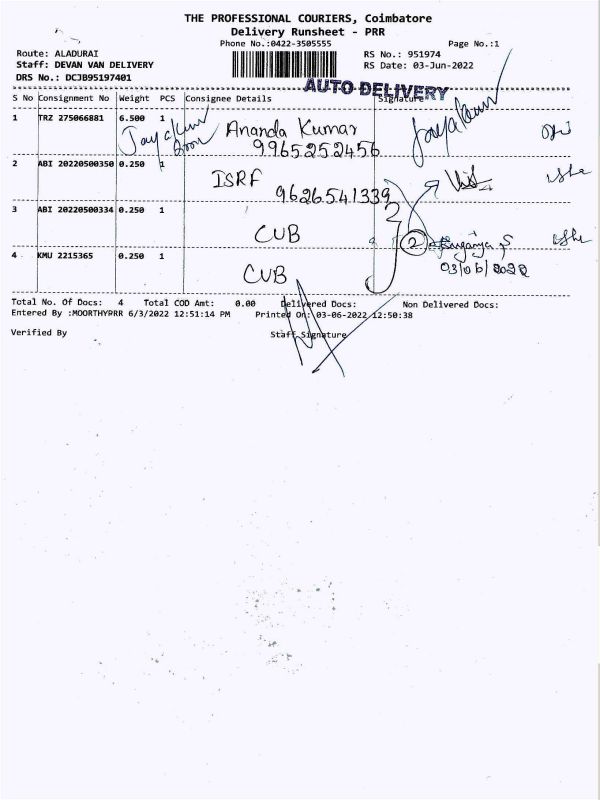 THE PROFESSIONAL COURIERS, Coimbatore
Delivery Runsheet - PRR
Phone No.:0422-3505555 Page No.:1
Route: ALADURAI RS No.: 951974
Staff: DEVAN VAN DELIVERY RS Date: 03-Jun-2022
DRS No.: DCJB95197401
AUTO DELIVERY
S No Consignment No Weight PCS Consignee Details Signature
1 TRZ 275066881 6.500 1 Ananda Kumar
9965252456
2 ABI 20220500350 0.250 1 ISRF
9626541339
3 ABI 20220500334 0.250 1 CUB
2
03/06/2022
4 KMU 2215365 0.250 1 CUB
Total No. Of Docs: 4 Total COD Amt: 0.00 Delivered Docs: Non Delivered Docs:
Entered By :MOORTHYRRR 6/3/2022 12:51:14 PM Printed On: 03-06-2022 12:50:38
Verified By Staff Signature